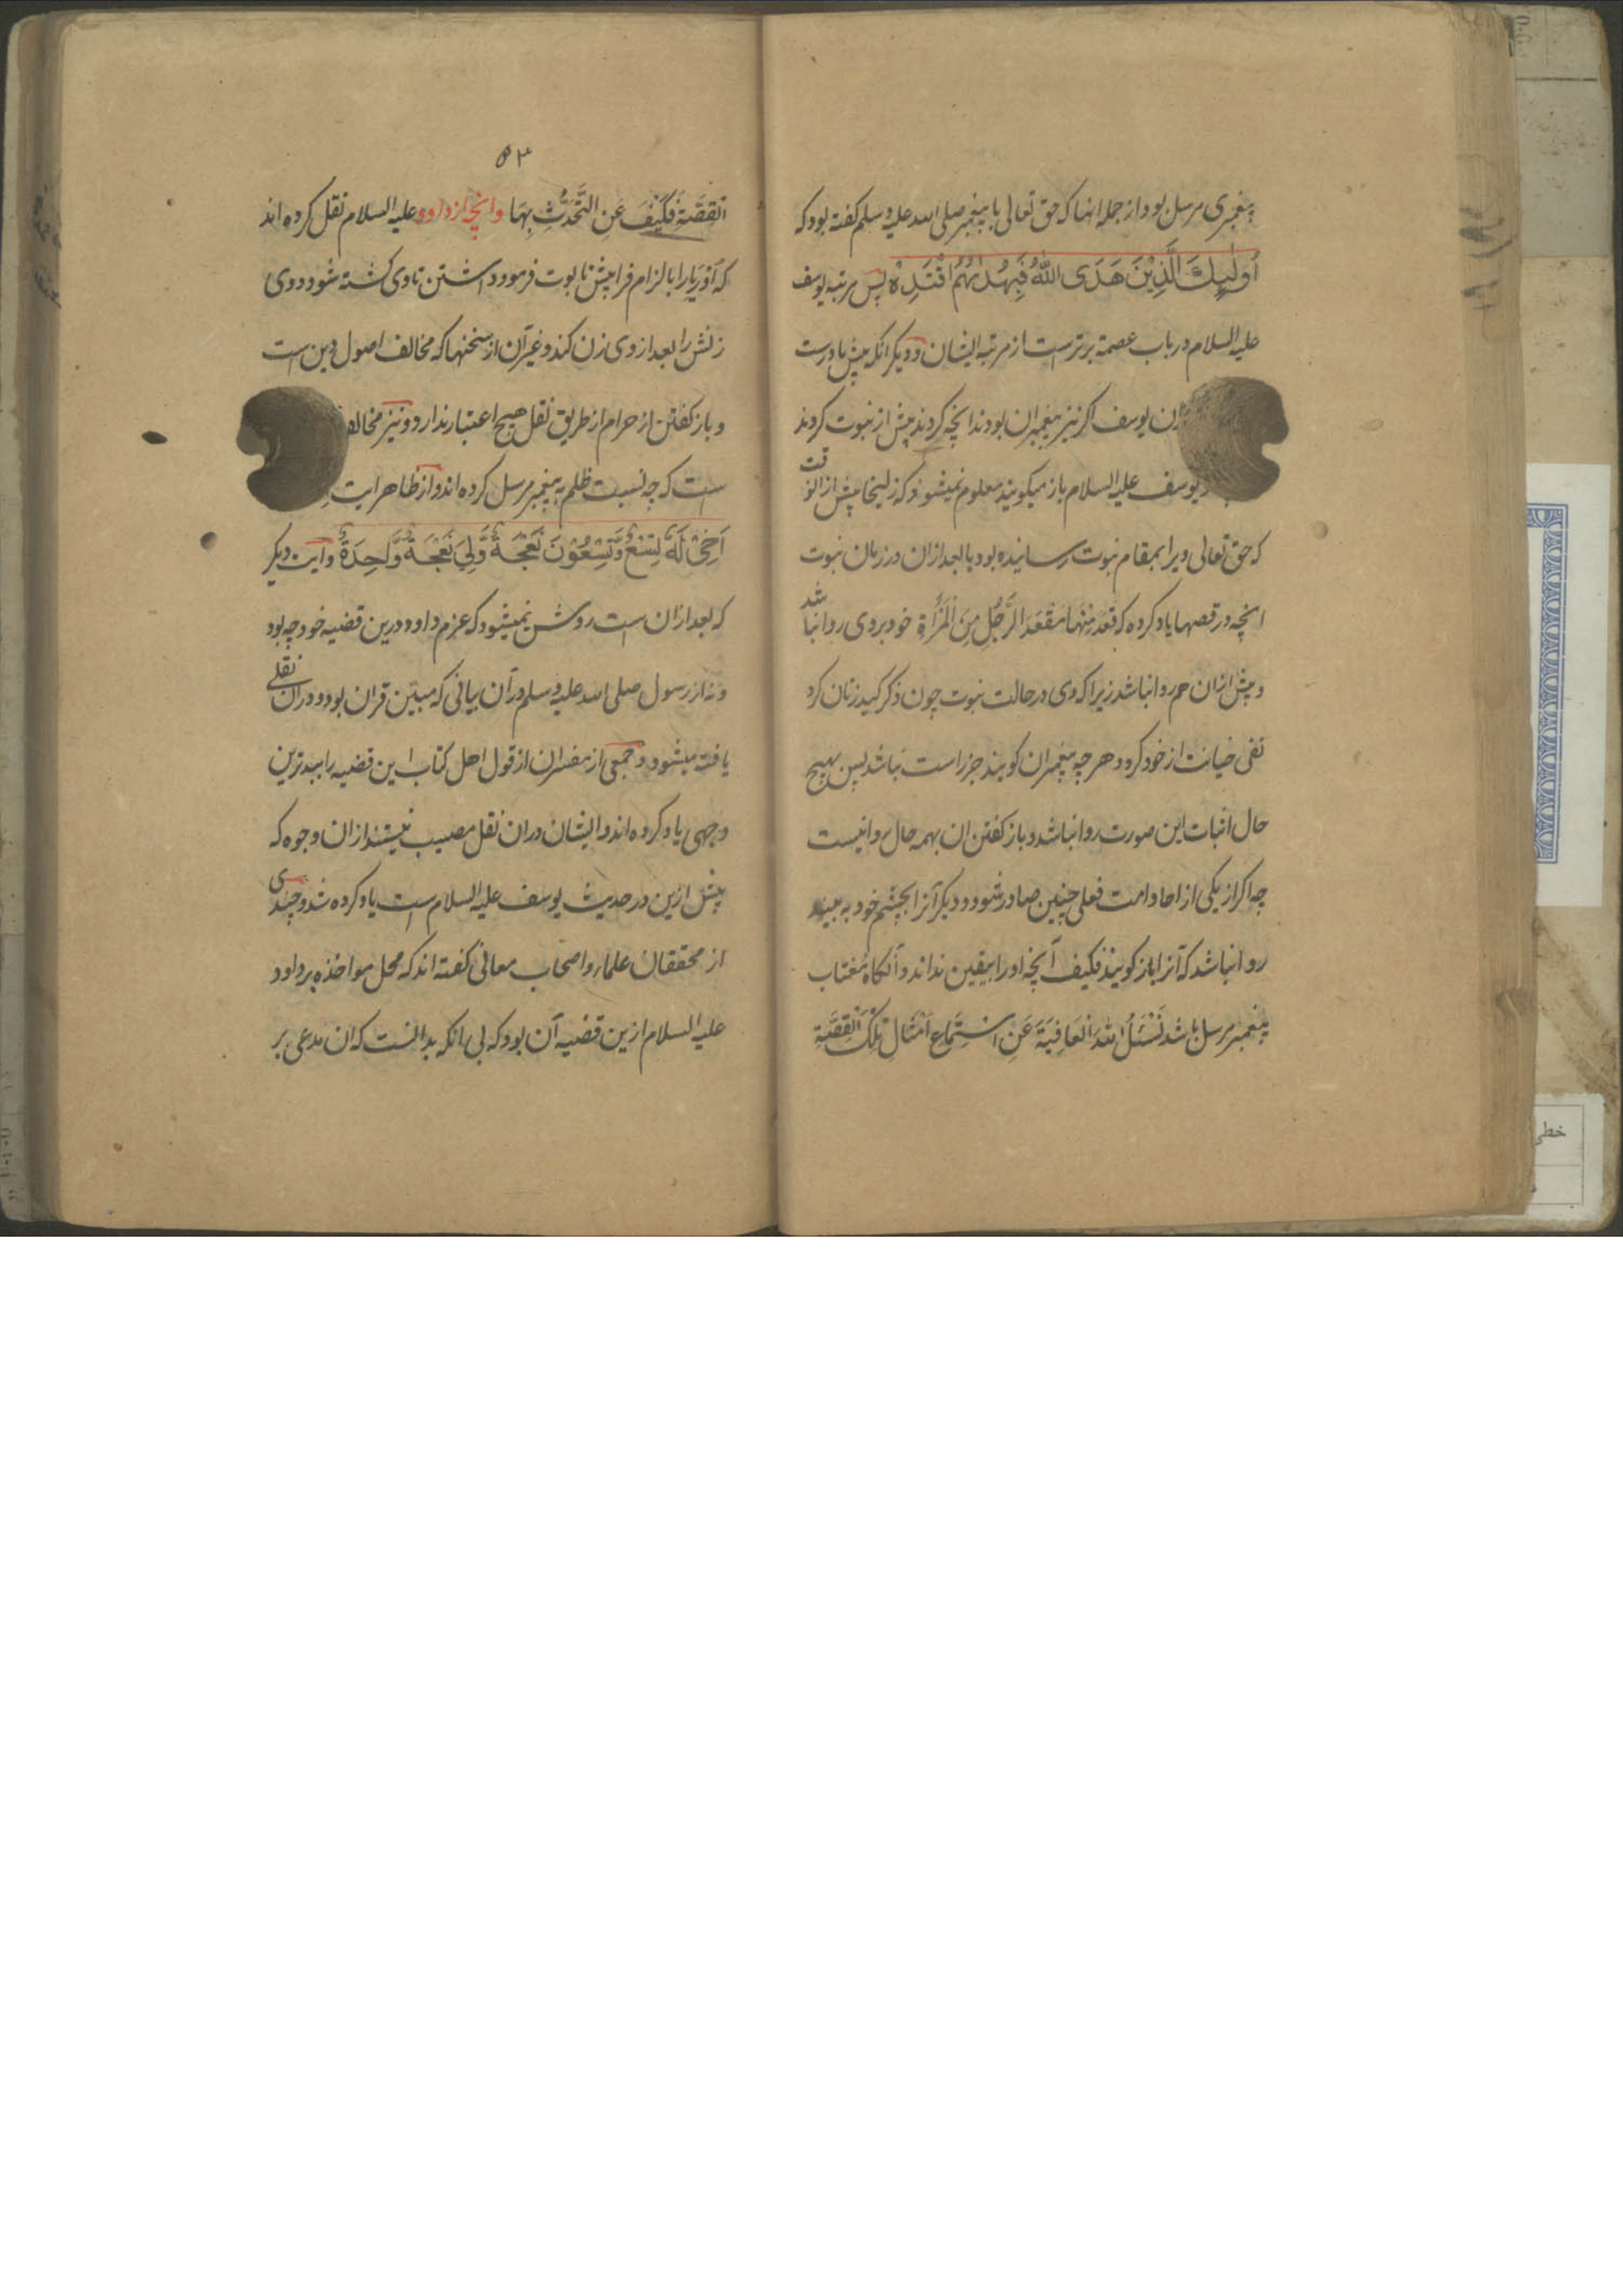 پیغمبری مرسل بود از جمله انها که حق تعالی با پیغمبر صلی الله علیه وسلم کفته بود که
اُولٰٓئِكَ الَّذِیْنَ هَدَی اللّٰهُ فَبِهُدٰىهُمُ اقْتَدِهْ پس مرتبه یوسف
علیه السلام در باب عصمة برترست از مرتبه ایشان و دیگر انکه پیش ما درست
یوسف اکر نیز پیغمبران بودند انچه کردند پیش از نبوت کردند
یوسف علیه السلام باز میکویند معلوم نمیشود که زلیخا پیش از الوقت
که حق تعالی ویرا بمقام نبوت رسانیده بود یا بعد ازان در زمان نبوت
انچه در قصها یاد کرده که قَعَدَ مِنْهَا مَقْعَدَ الرَّجُلِ مِنَ الْمَرْأَةِ خود بروی روا نباشد
و پیش ازان هم روا نباشد زیرا که وی در حالت نبوت چون ذکر کید زنان کرد
نفی خیانت از خود کرد و هرچه پیغمبران کویند جز راست نباشد پس بهیچ
حال اثبات این صورت روا نباشد و باز کفتن ان بهمه حال روا نیست
چه اکر از یکی از احاد امت فعلی چنین صادر شود و دیکر آنرا بچشم خود به بیند
روا نباشد که آنرا باز کویند فکیف آنچه او را بیقین نداند و آنکاه مُغتاب
پیغمبر مرسل باشد نَسْئَلُ اللهَ الْعَافِیَةَ عَنِ اسْتِمَاعِ اَمْثَالِ تِلْكَ الْقِصَّةِ
۵۳
الْقِصَّةِ فَكَیْفَ عَنِ التَّحَدُّثِ بِهَا وانچه از داود علیه السلام نقل کرده اند
که اَوْرِیَا را بالزام فرا پیش تابوت فرمود داشتن تا وی کشته شود و وی
زنش را بعد از وی زن کند و غیر آن از سخنها که مخالف اصول دین است
و باز کفتن از حرام از طریق نقل هیچ اعتبار ندارد و نیز مخالف
ست که چه نسبت ظلم به پیغمبر مرسل کرده اند و از ظاهر ایت
اَخِیْ لَهٗ تِسْعٌ وَّتِسْعُوْنَ نَعْجَةً وَّلِیَ نَعْجَةٌ وَّاحِدَةٌ و ایت دیکر
که بعد ازان است روشن نمیشود که عزم داود درین قضیه خود چه بود
و نه از رسول صلی الله علیه وسلم در آن بیانی که مبین قران بود و دران نقلی
یافته میشود و جمعی از مفسران از قول اهل کتاب این قضیه را ببدترین
وجهی یاد کرده اند و ایشان دران نقل مصیب نیستند ازان وجوه که
پیش ازین در حدیث یوسف علیه السلام است یاد کرده شد و چندی
از محققان علماء و اصحاب معانی کفته اند که محل مواخذه بر داود
علیه السلام ازین قضیه آن بود که بی انکه بدانست که ان مدعی بر
خطی